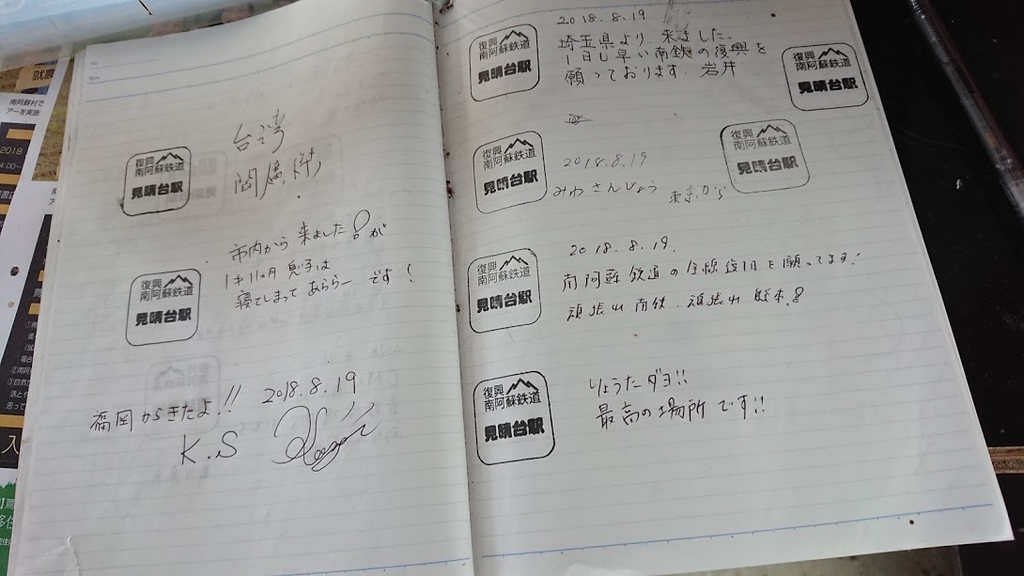 台湾
復興
南阿蘇鉄道
見晴台駅
市内から来ました!が
1才11ヶ月息子は
寝てしまってあららーです!
復興
南阿蘇鉄道
見晴台駅
福岡からきたよ!! 2018.8.19
K.S
2018.8.19
埼玉県より、来ました。
1日も早い南鉄の復興を
願っております。岩井
復興
南阿蘇鉄道
見晴台駅
復興
南阿蘇鉄道
見晴台駅
2018.8.19
みわさんひょう 東京から
復興
南阿蘇鉄道
見晴台駅
復興
南阿蘇鉄道
見晴台駅
2018.8.19.
南阿蘇鉄道の全線復旧を願ってます!
頑張れ南鉄、頑張れ熊本!
復興
南阿蘇鉄道
見晴台駅
りょうたダヨ!!
最高の場所です!!
復興
南阿蘇鉄道
見晴台駅
2018